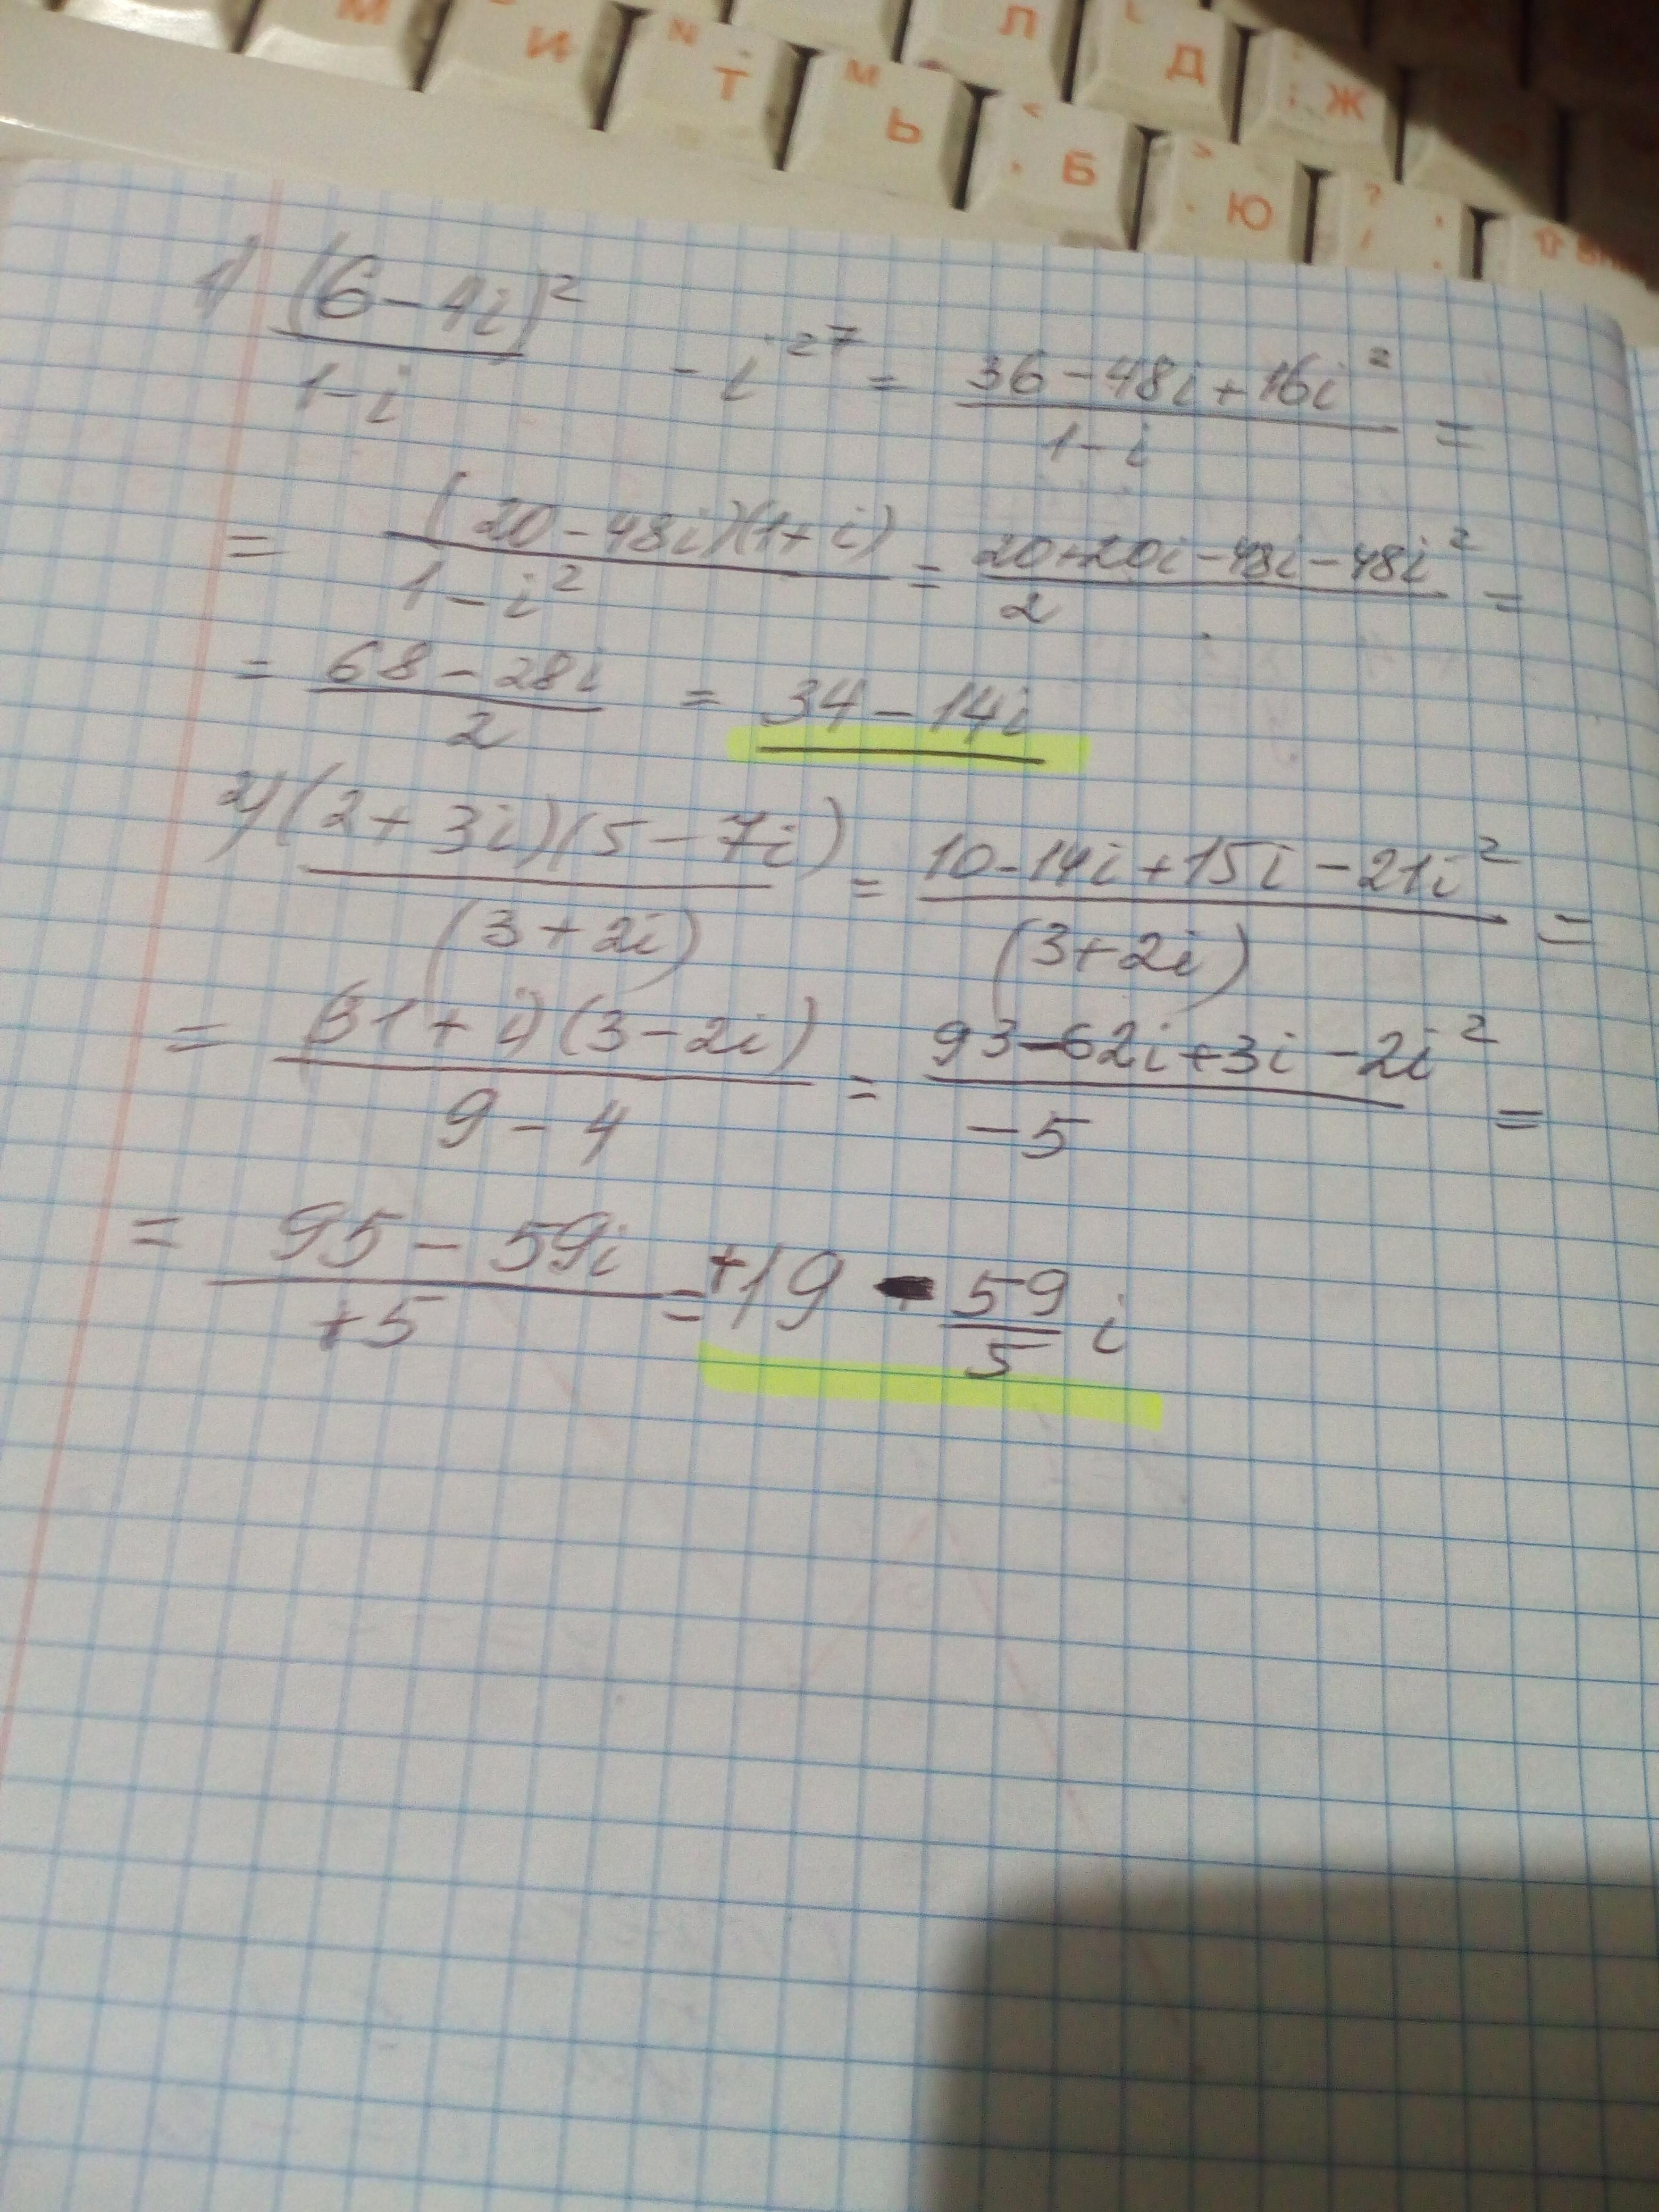 М И N Т М Ь Л < , Б L Д > . Ю : ; Ж ? /
1) (6-4i)²/(1-i) - i²⁷ = (36-48i+16i²)/(1-i) =
= (20-48i)(1+i)/(1-i²) = (20+20i-48i-48i²)/2 =
= (68-28i)/2 = 34-14i
2) (2+3i)(5-7i)/(3+2i) = (10-14i+15i-21i²)/(3+2i) =
= (31+i)(3-2i)/(9-4) = (93-62i+3i-2i²)/(-5) =
= (95-59i)/(+5) = +19 - 59/5 i